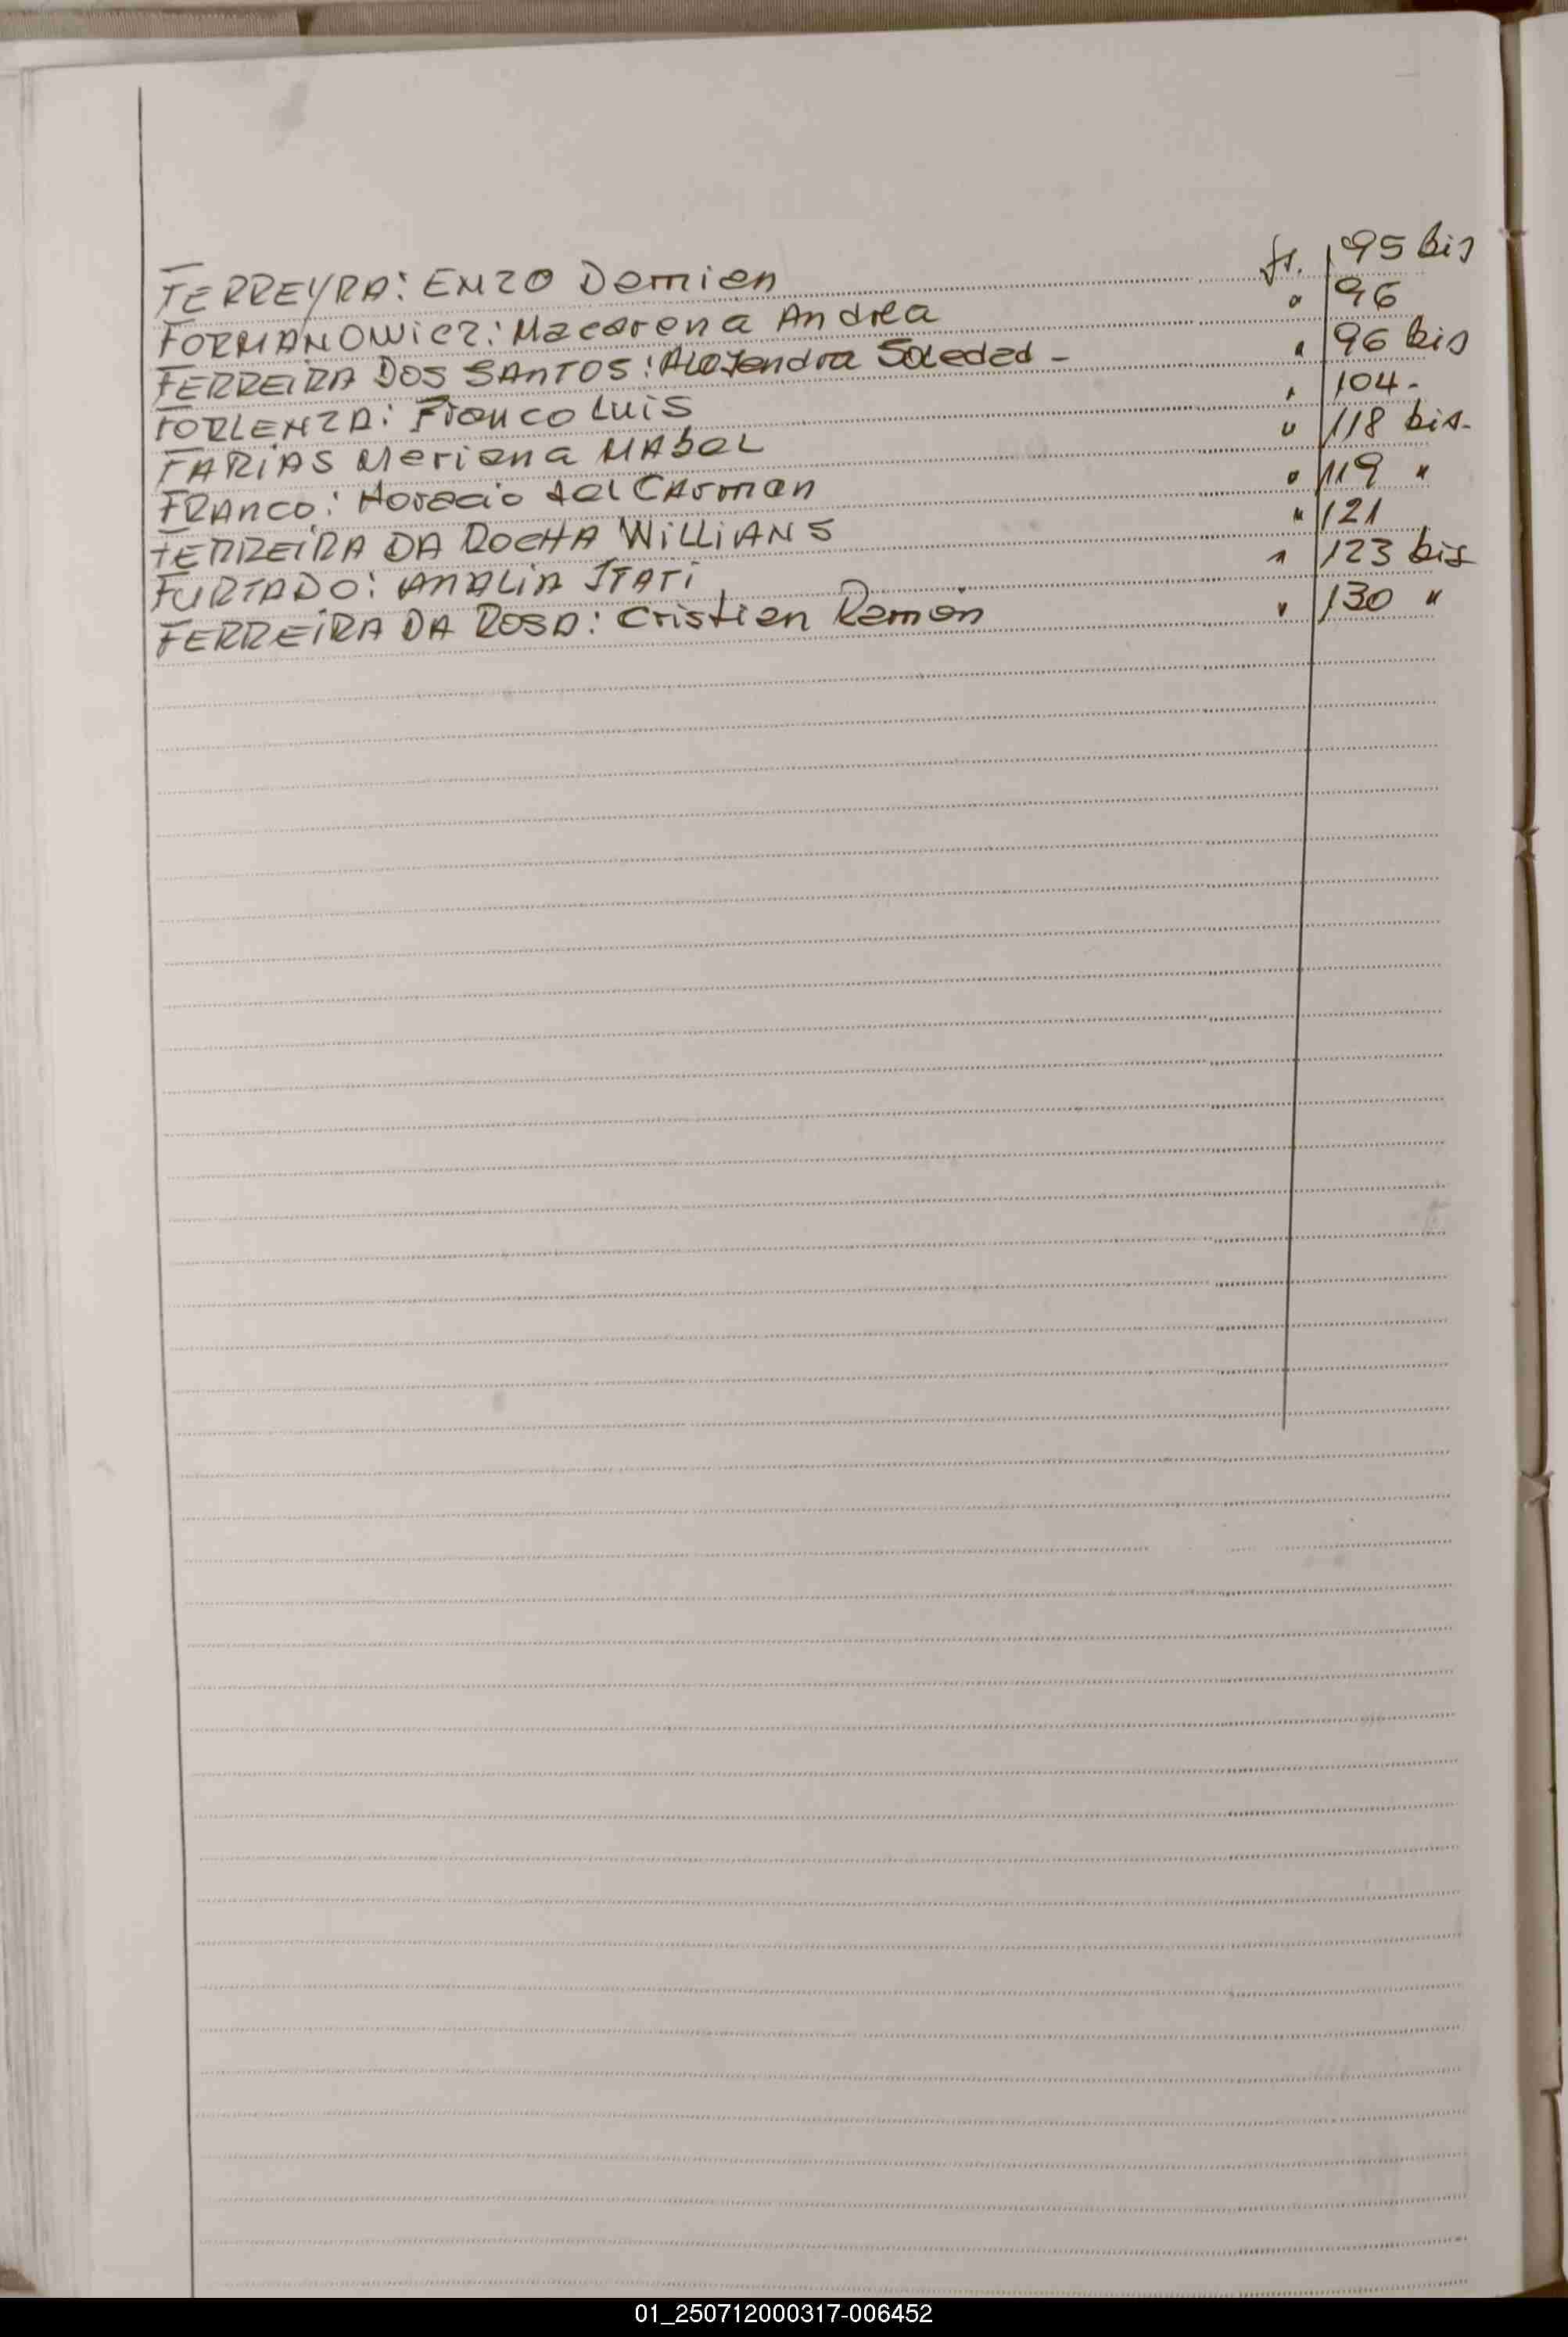 FERREYRA: ENZO Damian fs. 95 bis
FORMANOWicz: Macarena Andrea " 96
FERREiRA DOS SANTOS: Alejandra Soledad - " 96 bis
FORLENZA: Franco Luis " 104-
FARiAS Mariana MAbel " 118 bis-
FRANCO: Horacio del CArman " 119 "
FERREiRA DA ROCHA WiLLiANS " 121
FURTADO: ANALiA ITATi " 123 bis
FERREiRA DA ROSA: Cristian Ramón " 130 "
01_250712000317-006452